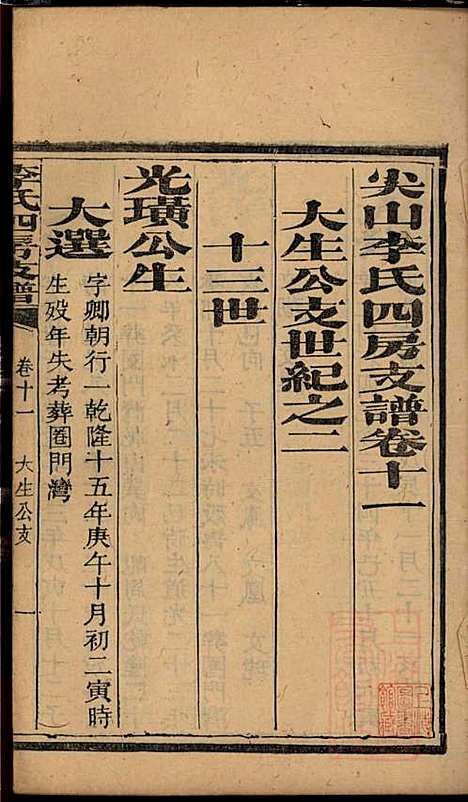 尖山李氏四房支譜卷十一
大生公支世紀之二
十三世
光璜公生
大選
字卿朝行一乾隆十五年庚午十月初二寅時
生殁年失考葬圈門灣
李氏四房支譜
卷十一
大生公支
一